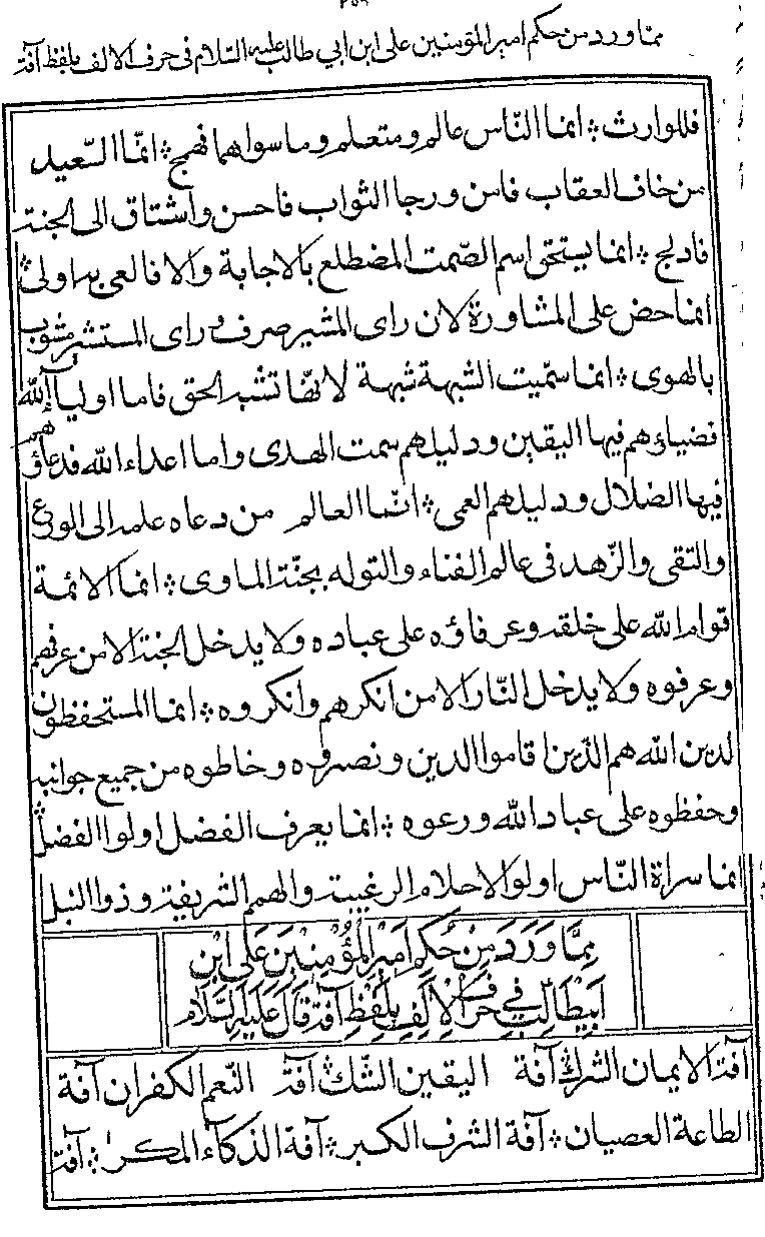 ٢٥٩
مما ورد من حكم امير المؤمنين على ابن ابي طالب عليه السّلام فى حرف الالف بلفظ آفة
فللوارث ؞ انما النّاس عالم ومتعلم وما سواهما فهمج ؞ انّما السّعيد
من خاف العقاب فامن ورجا الثواب فاحسن واشتاق الى الجنة
فادلج ؞ انما يستحق اسم الصّمت المضطلع بالاجابة والا فالعى به اولى ؞
انما حض على المشاورة لان راى المشير صرف وراى المستشير مشوب
بالهوى ؞ انما سمّيت الشبهة شبهة لانّها تشبه الحق فاما اولياء اللّه
فضياؤهم فيها اليقين ودليلهم سمت الهدى واما اعداء اللّه فدعاؤهم
فيها الضلال ودليلهم العمى ؞ انّما العالم من دعاه علمه الى الورع
والتقى والزّهد فى عالم الفناء والتوله بجنّة الماوى ؞ انما الائمة
قوام اللّه على خلقه وعرفاؤه على عباده ولا يدخل الجنة الا من عرفهم
وعرفوه ولا يدخل النّار الا من انكرهم وانكروه ؞ انما المستحفظون
لدين اللّه هم الّذين اقاموا الدين ونصروه وحاطوه من جميع جوانبه
وحفظوه على عباد اللّه ورعوه ؞ انما يعرف الفضل اولوا الفضل ؞
انما سراة النّاس اولوا الاحلام الرغيبة والهمم الشريفة وذوا النبل
مِمَّا وَرَدَ مِنْ حُكمِ اَميرِ المُؤْمِنينَ عَلى ابْنِ
اَبيطالِبٍ في حَرفِ الاَلِفِ بِلَفْظِ آفَة قالَ عَلَيْهِ السَّلام
آفة الايمان الشرك ؞ آفة اليقين الشّك ؞ آفة النّعم الكفران آفة
الطاعة العصيان ؞ آفة الشرف الكبر ؞ آفة الذكآء المكر ؞ آفة